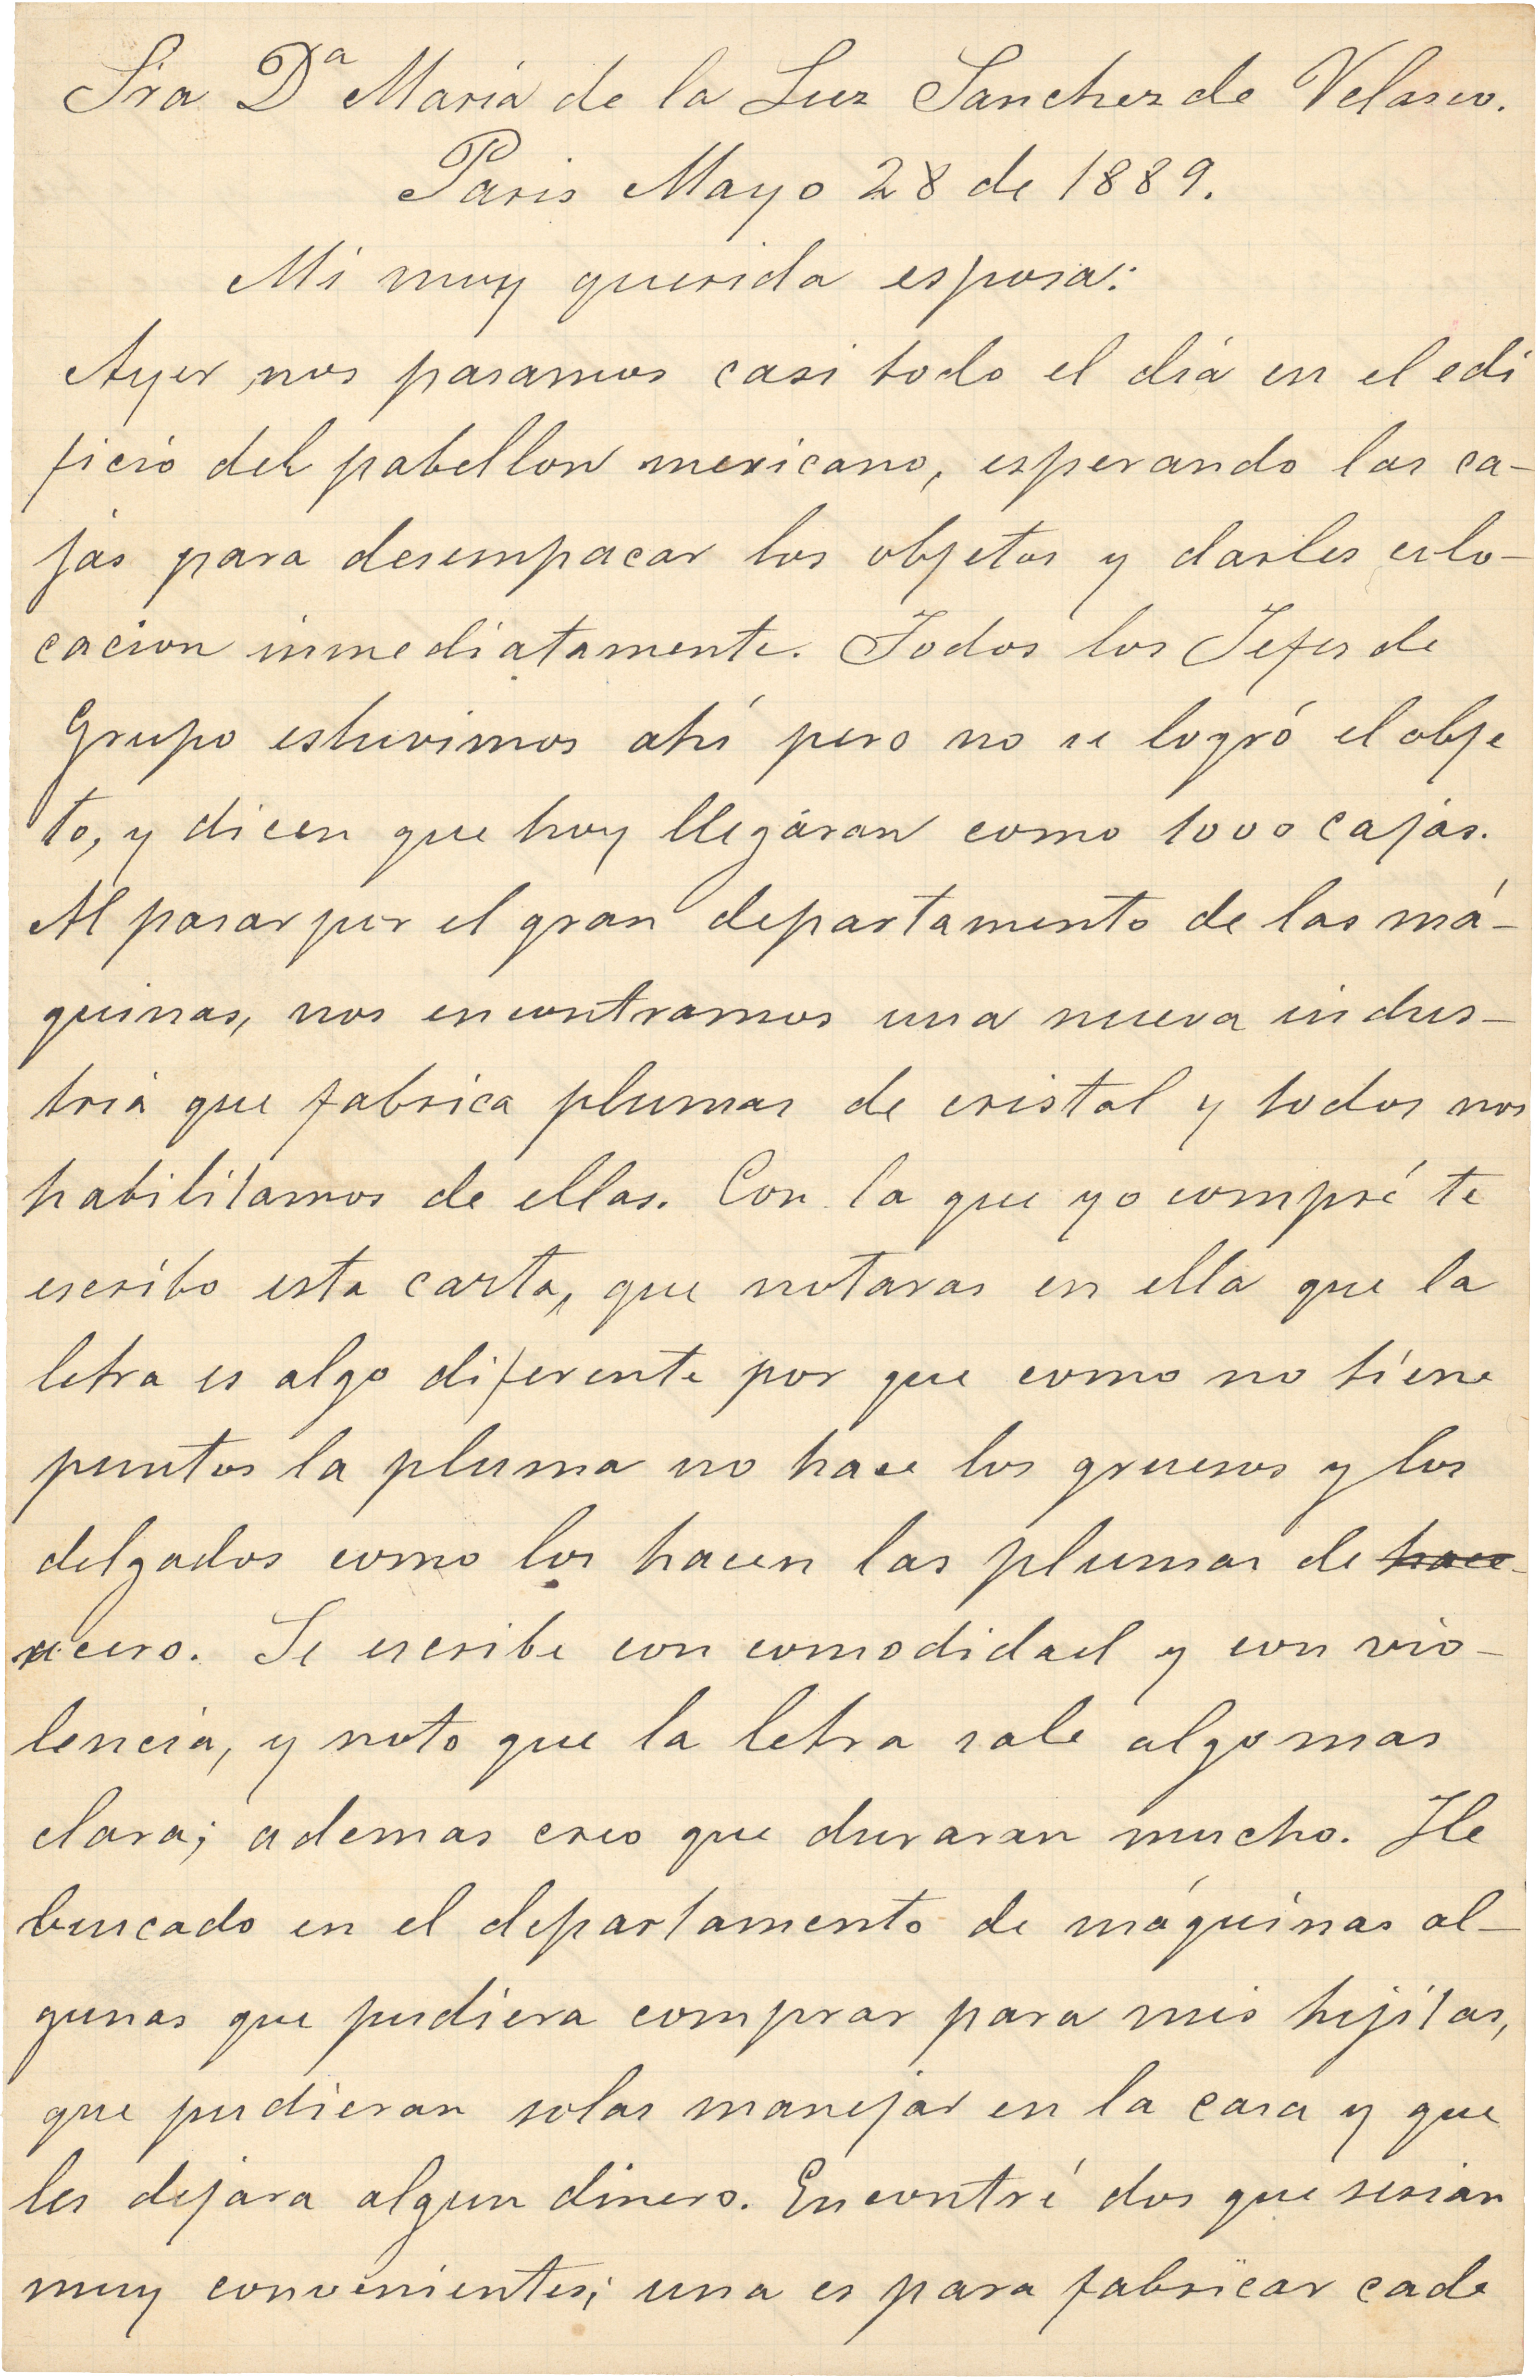 Sra Dª Maria de la Luz Sanchez de Velasco.
Paris Mayo 28 de 1889.
Mi muy querida esposa:
Ayer nos pasamos casi todo el dia en el edi
ficio del pabellon mexicano, esperando las ca-
jas para desempacar los objetos y darles colo-
cacion inmediatamente. Todos los Jefes de
Grupo estuvimos ahí pero no se logró el obje
to, y dicen que hoy llegáran como 1000 cajas.
Al pasar por el gran departamento de las má-
quinas, nos encontramos una nueva indus-
tria que fabrica plumas de cristal y todos nos
habilitamos de ellas. Con la que yo compré te
escribo esta carta, que notaras en ella que la
letra es algo diferente por que como no tiene
puntos la pluma no hace los gruesos y los
delgados como los hacen las plumas de hace
acero. Se escribe con comodidad y con vio-
lencia, y noto que la letra sale algo mas
clara; ademas creo que duraran mucho. He
buscado en el departamento de máquinas al-
gunas que pudiera comprar para mis hijitas,
que pudieran solas manejar en la casa y que
les dejara algun dinero. Encontré dos que serian
muy convenientes; una es para fabricar cade